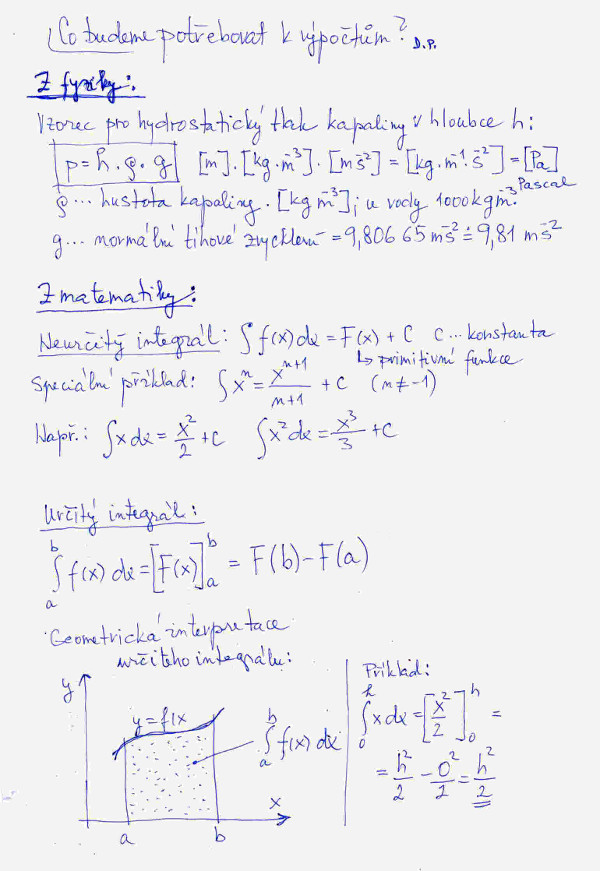 Co budeme potřebovat k výpočtům? D.P.
Z fyziky:
Vzorec pro hydrostatický tlak kapaliny v hloubce h:
p = h . ρ . g [m] . [kg . m⁻³] . [m s⁻²] = [kg . m⁻¹ . s⁻²] = [Pa]
Pascal
ρ ... hustota kapaliny . [kg m⁻³]; u vody 1000 kg m⁻³.
g ... normální tíhové zrychlení = 9,806 65 m s⁻² ≐ 9,81 m s⁻²
Z matematiky:
Neurčitý integrál: ∫ f(x) dx = F(x) + C c ... konstanta
↳ primitivní funkce
Speciální příklad: ∫ xⁿ = xⁿ⁺¹/n+1 + C (n ≠ -1)
Např.: ∫ x dx = x²/2 + C ∫ x² dx = x³/3 + C
Určitý integrál:
∫ₐᵇ f(x) dx = [F(x)]ₐᵇ = F(b) - F(a)
Geometrická interpretace
určitého integrálu:
y
y = f(x
∫ₐᵇ f(x) dx
x
a b
Příklad:
∫₀ʰ x dx = [x²/2]₀ʰ =
= h²/2 - 0²/2 = h²/2